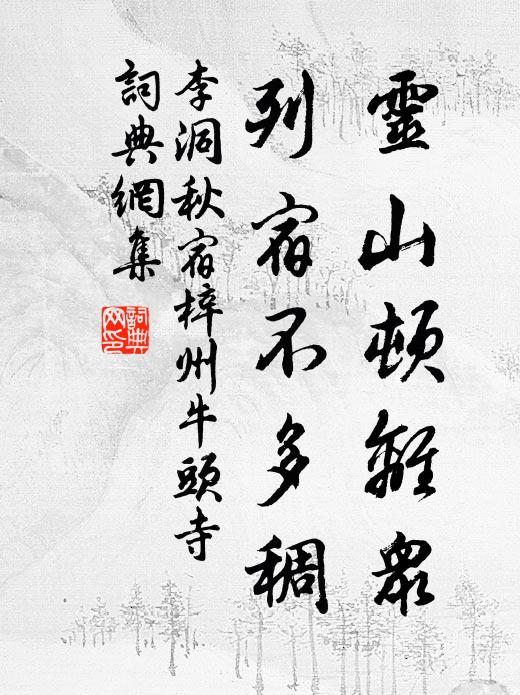 靈山頓離眾
列宿不多稠
李洞秋宿梓州牛頭寺
詞典網集
詞典網印